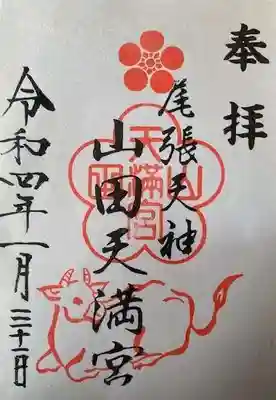 奉拝
尾張天神
山田天満宮
令和四年一月三十一日
山田天満宮